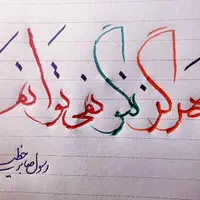 هرگز نگو نمی‌توانم
رسول صابر خطیب